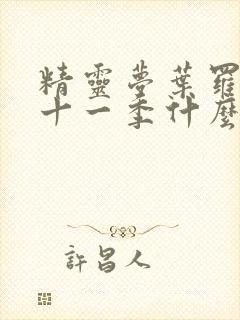 精靈夢葉羅
十一季什麼
許昌人